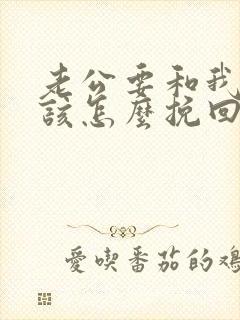 老公要和我
該怎麼挽回
愛喫番茄的雞